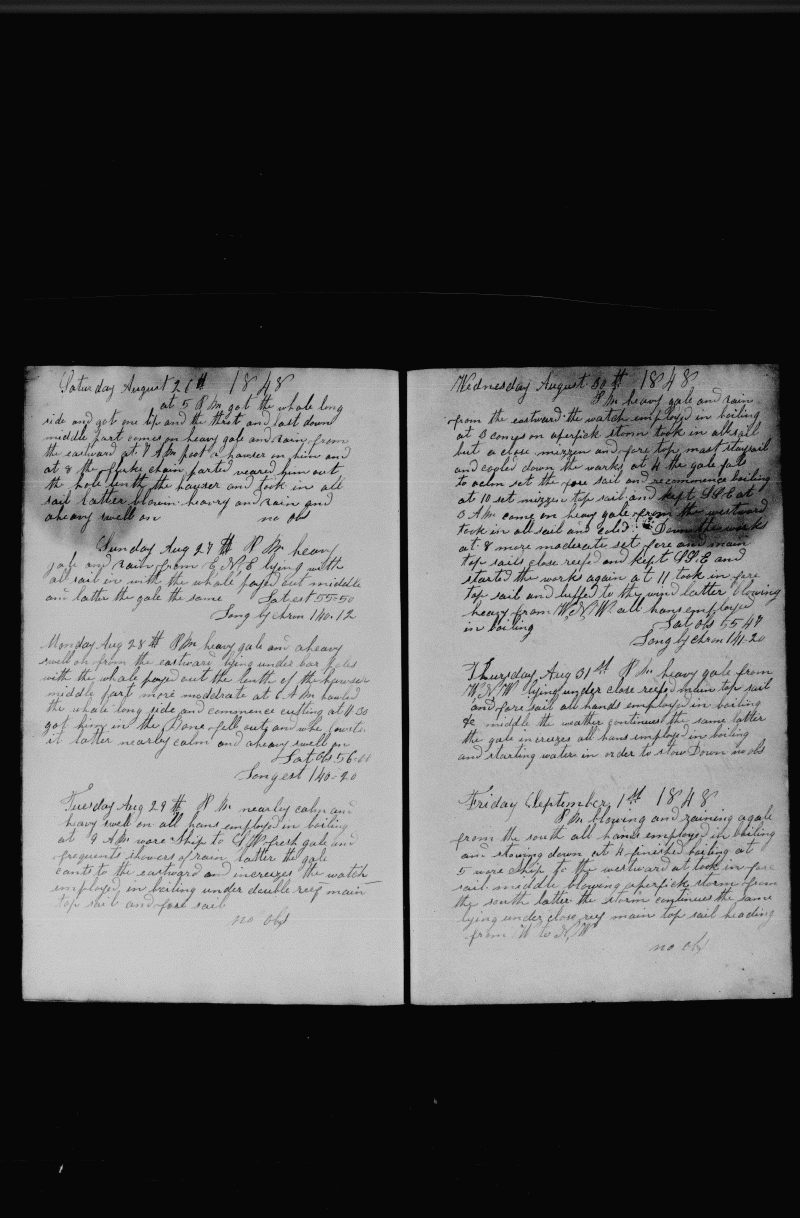 Saturday August 26th 1848
at 5 P M got the whale long
side and got one lip and the throt and last down
middle part comes on heavy gale and rain from
the eastward at 7 A M poot a hawser on him and
at 8 the fluke chain parted veared him out
the hole lenth the hauser and took in all
sail latter blowin heavry and rain and
a heavy swell on no obs
Sunday Aug 27th P M heavy
gale and rain from E N E lying with
all sail in with the whale payed out middle
and latter the gale the same Lat est 55-50
Long by chron 140-12
Monday Aug 28th P M heavy gale and a heavy
swell on from the eastward lying under bar poles
with the whale payed out the lenth of the hawser
middle part more moderate at 6 A M hauled
the whale long side and commence cutting at 11 30
got him in the Bone fell out and whe lowrte
it latter nearly calm and a heavy swell on
Lat obs 56-00
Long est 140-20
Tuesday Aug 29th P M nearly calm and
heavy swell on all hans employed in boiling
at 9 A M wore ship to S W fresh gale and
frequents showers of rain latter the gale
cants to the eastward an increezes the watch
employed in boiling under double reef main
top sail and fore sail
no obs
Wednesday August 30th 1848
P M heavy gale and rain
from the eastward the watch employed in boiling
at 3 comes on a perfick storm took in all sail
but a close mizzen and fore top mast staysail
and cooled down the works at 4 the gale falls
to calm set the fore sail and recommence boiling
at 10 set mizzen top sail and kept S S E at
3 A M came on heavy gale from the westward
took in all sail and coled Down the work
at 8 more moderate set fore and main
top sails close reefed and kept S S E and
started the works again at 11 took in fore
top sail and luffed to the wind latter blowing
heavy from W N W all hans employed
in boiling Lat obs 55 47
Long by chron 141-20
Thursday Aug 31st P M heavy gale from
W N W lying under close reefed main top sail
and fore sail all hands employed in boiling
&c middle the weather continues the same latter
the gale increezes all hans employed in boiling
and starting water in order to stow Down no obs
Friday September 1st 1848
P M blowing and raining a gale
from the south all hands employed in boiling
and stowing down at 4 finished boiling at
5 wore ship to the westward at took in fore
sail middle blowing a perfick storm from
the south latter the storm continues the same
lying under close reef main top sail heading
from W to N W
no obs